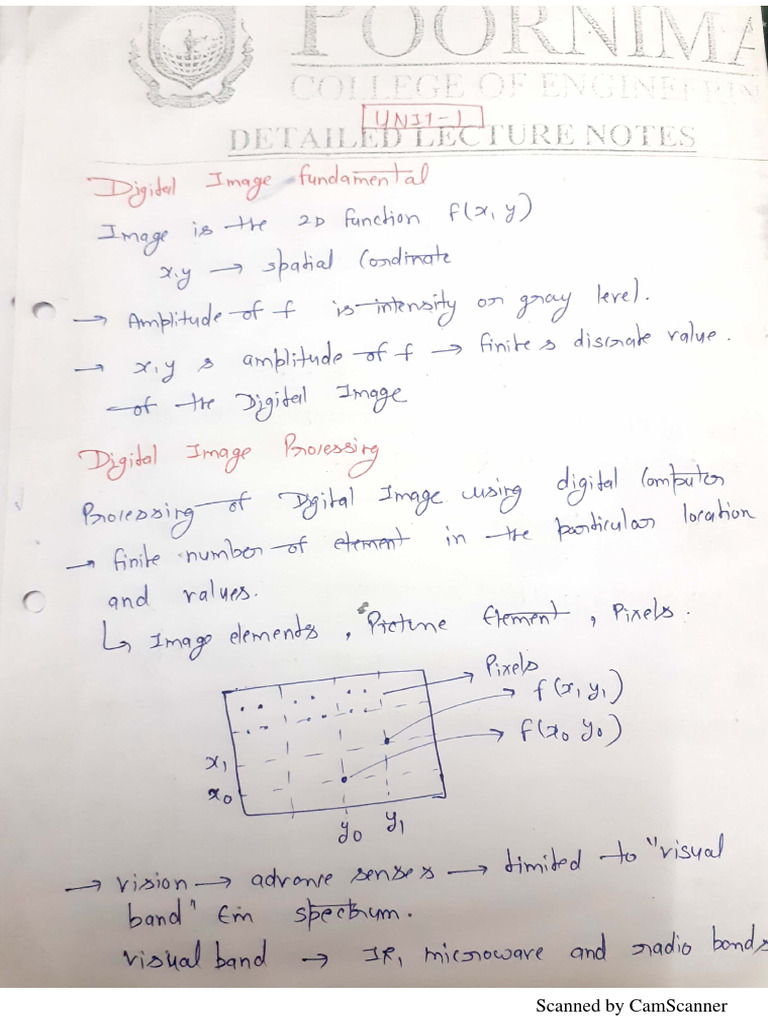 POORNIMA
COLLEGE OF ENGINEERIN
UNIT-1
DETAILED LECTURE NOTES
Digital Image fundamental
Image is the 2D function f(x, y)
x,y → spatial Cordinate
→ Amplitude of f is intensity or gray level.
→ x,y & amplitude of f → finite & discrate value.
of the Digital Image
Digital Image Processing
Processing of Digital Image using digital Computer
→ finite number of element in the particular location
and values.
↳ Image elements, Picture Element, Pixels.
Pixels
f(x1 y1)
f(x0 y0)
x1
x0
y0 y1
→ vision → advance senses → limited to "visual
band" Em spectrum.
visual band → IR, microwave and radio bands
Scanned by CamScanner